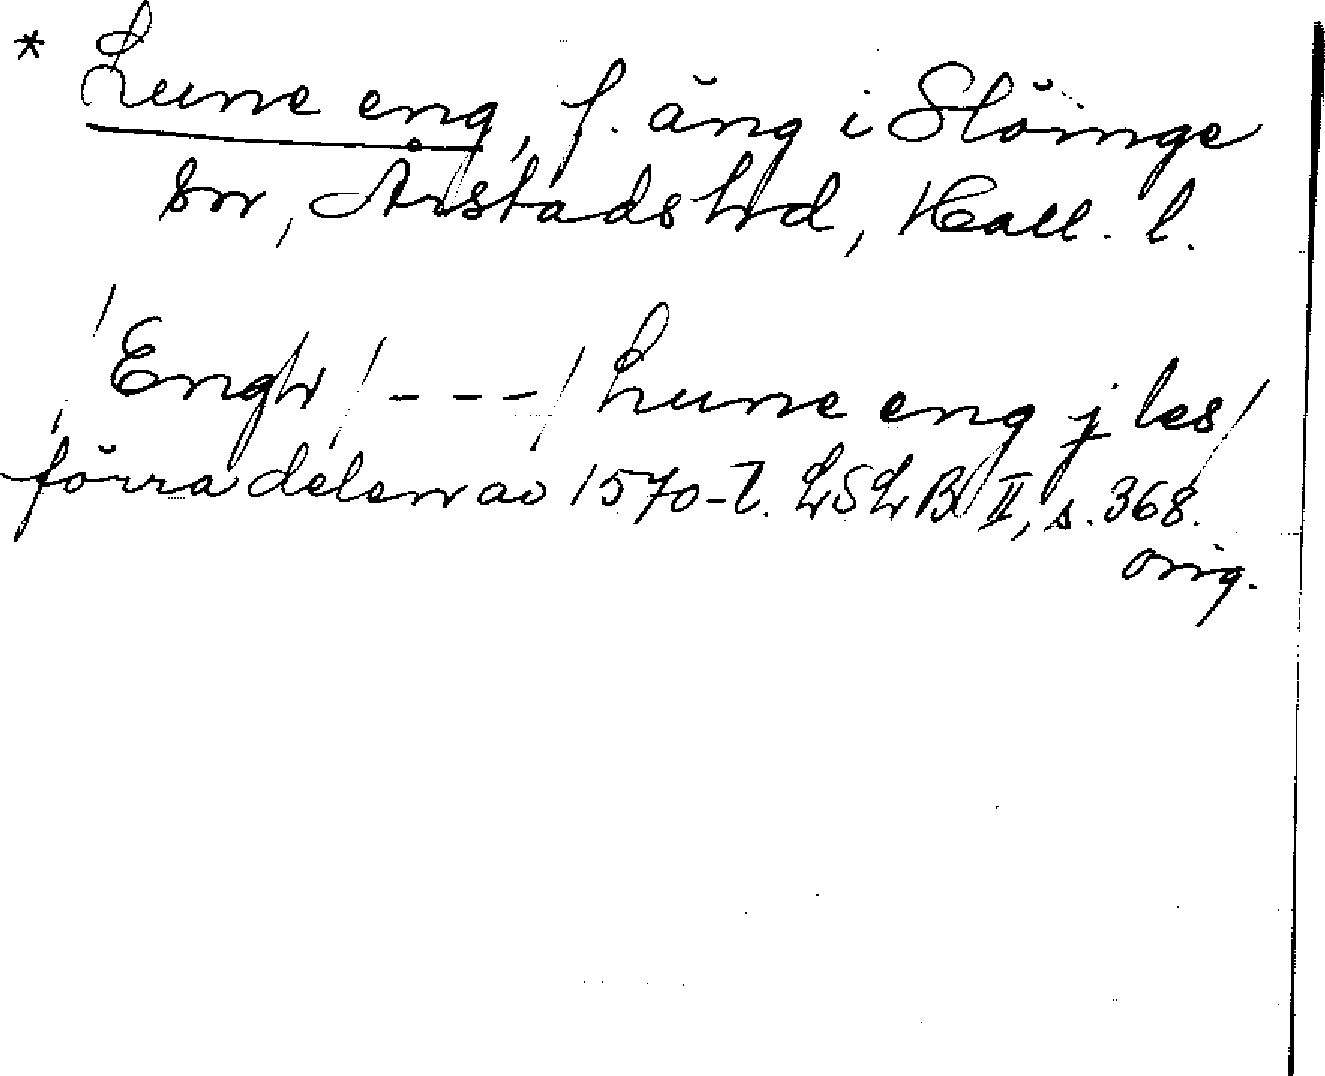 * Lune eng, f. äng i Slöinge
sn, Årstads hd, Hall. l.
/Engh/ /---/ Lune eng j les/
förra delen av 1570-t. LSLB II, s. 368.
orig.